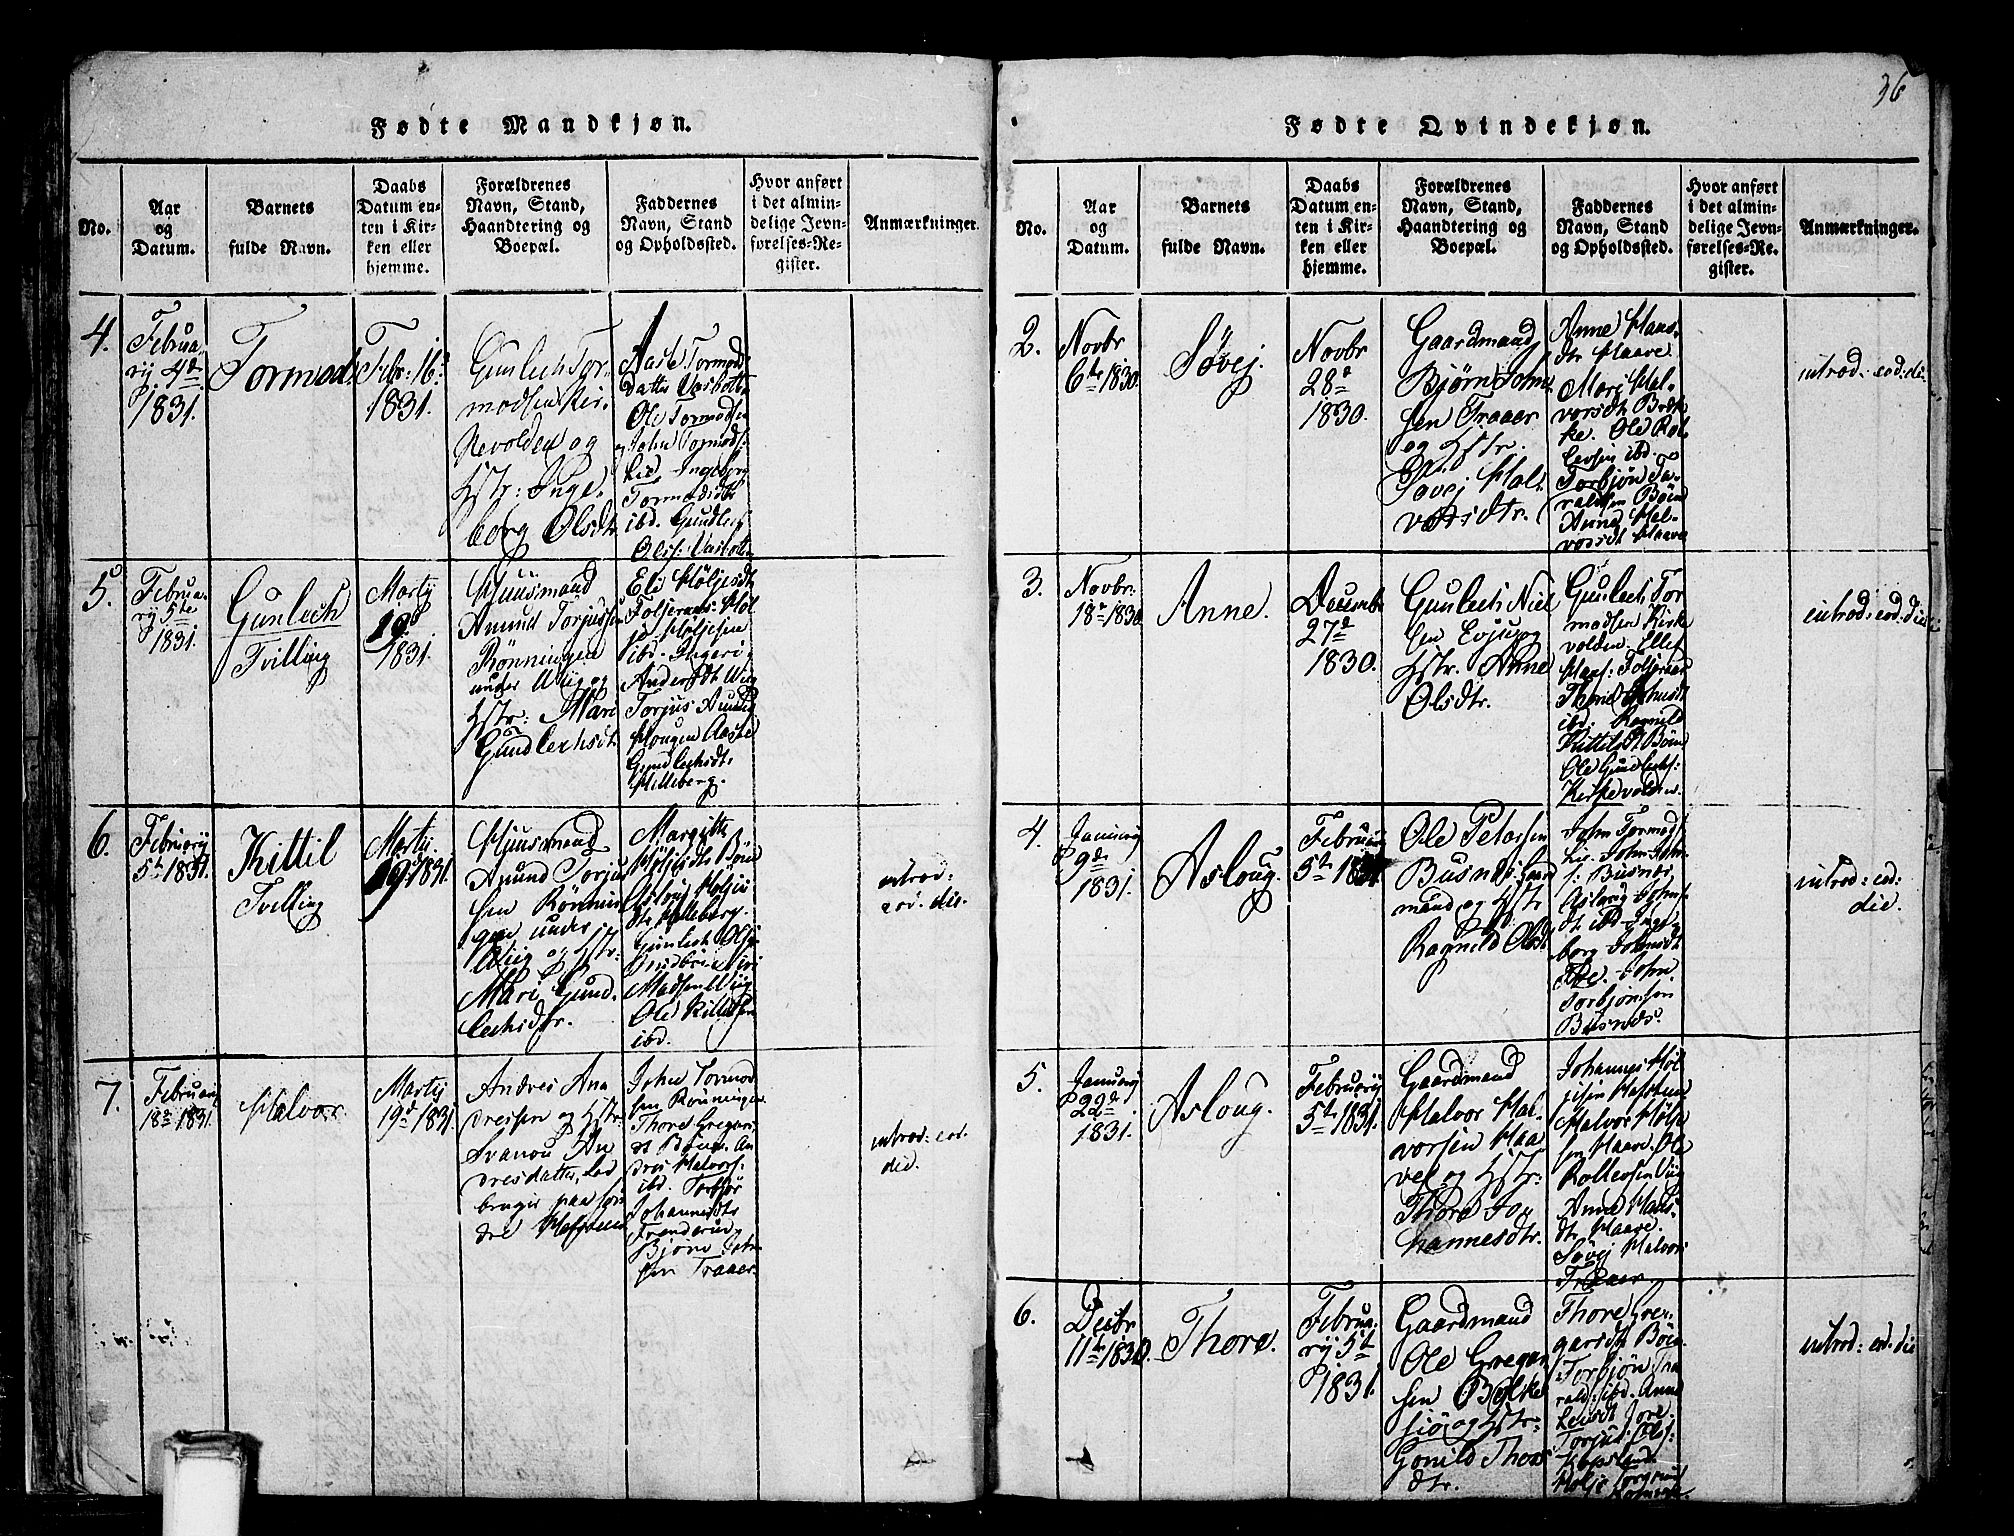 36
Fødte Mandkjøn.
No.
Aar
og
Datum.
Barnets
fulde Navn.
Daabs
Datum en-
ten i Kir-
ken eller
hjemme.
Forældrenes
Navn, Stand,
Haandtering og
Boepæl.
Faddernes
Navn, Stand
og Opholdssted.
Hvor anført
i det almin-
delige Jevn-
førelses-Re-
gister.
Anmærkninger.
4.
Februa-
rij 4de
1831.
Tormod.
Febr: 16de
1831.
Gunlech Tor-
modsen Kir-
kevolden og
Hstr: Inge-
borg Olsdtr
Aaste Tormod
Datter Vasbotten
Ole Tormodsen
John Tormods:
Lie Ingeborg
Tormodsdtr
ibd. Gundlech
Olss: Vasbotten
5.
Februa-
rij 5te
1831.
Gunlech
Tvilling
Martij
19de
1831.
Huusmand
Amund Torjussen
Rönningen
under Wiig og
Hstr: Mari
Gundlechsdtr.
Eli Höljesdt
Folseraas Höl
je Höljesen
ibd. Ingeri
Andersdt Wiig
Torjus Amunds
Hougen Aaste
Gundlechsdt:
Helleberg.
6.
Februarij
5te 1831.
Kittil
Tvilling
Martij
19de 1831.
Huusmand
Amund Torjus
sen Rönnin
gen under
Wiig og Hstr:
Mari Gund
lechsdtr.
Margitte
Höljesdt Böen
Asloug Höljes
dt Helleberg.
Gunlech Ols:
Madsen Wiig
Ole Kittilsen
ibd.
introd:
eod: die.
7.
Februarij
18de 1831.
Halvor
Martij
19de 1831.
Andres An
dresen og Hstr:
Svanou An
dresdatter, Lod
bruger paa Son
dre Hafsteen
John Tormod
sen Rönningen
Thore Gregari
dt Böen. An
dres Halvors:
ibd. Torbjör
Johannesdtr
Bjørn John
sen Traaer.
introd: eod:
die.
Fødte Qvindekjøn.
No.
Aar
og
Datum.
Barnets
fulde Navn.
Daabs
Datum en-
ten i Kir-
ken eller
hjemme.
Forældrenes
Navn, Stand,
Haandtering og
Boepæl.
Faddernes
Navn, Stand
og Opholdssted.
Hvor anført
i det almin-
delige Jevn-
førelses-Re-
gister.
Anmærkninger.
2.
Novbr
6te 1830.
Søvej.
Novbr
28de
1830.
Gaardmand
Bjørn John
sen Traaer
og Hstr.
Søvej Hal-
vorsdtr.
Anne Hans-
dtr Haave.
Mari Hal-
vorsdt Bolke
ke. Ole Rol
lefsen ibd.
Torbjøn Ta-
raldsen Böen
Anne Hal-
vorsdt Haave
introd: eod: die.
3.
Novbr:
18de 1830.
Anne.
Decembr
27de
1830.
Gunlech Niel
sen Evju og
Hstr. Anne
Olsdtr.
Gunlech Tor
modsen Kirke
volden. Ellef
Hans: Folseraas
Thone Johnsdt
ibd. Ragnild
Kittilsdt Böen
Ole Gundlechs:
Kirkevolden.
introd: eod: die
4.
Januarij
9de
1831.
Asloug.
Februarij
5te 1831.
Ole Petersen
Busnes Huus
mand og Hstr
Ragnild Olsdt
John Tormods:
Lie. John John
s: Busnes,
Aslaug Johns
dt ibd. Inge
borg Johnsdt
Lie. John
Torbjönsen
Busnes.
introd: eod:
die.
5.
Januarij
22de
1831.
Asloug.
Februarij
5te 1831.
Gaardmand
Halvor Hal-
vorsen Haa
ve og Hstr:
Thore Jo
hannesdtr.
Johannes Höl
jesen Hafsteen
Halvor Hölje
sen Haave. Ole
Rollefsen Wiig
Anne Hans-
dt Haave.
Søvej Halvors
Traaer
6.
Decbr
11te 1830.
Thore.
Februa-
rij 5te
1831.
Gaardmand
Ole Gregar
sen Bolke
sjö og Hstr:
Gonild Thors
dtr.
Thore Gre-
garsdt Böen
Torbjön Ta
rald: ibd. Anne
Torjus Ols:
Hölje Torgrims
introd: eod: die